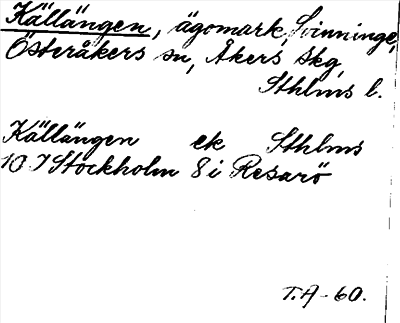 Källängen, ägomark, Svinninge,
Österåkers sn, Åkers skg,
Sthlms l.
Källängen ek Sthlms
10 I Stockholm 8 i Resarö
T.A - 60.